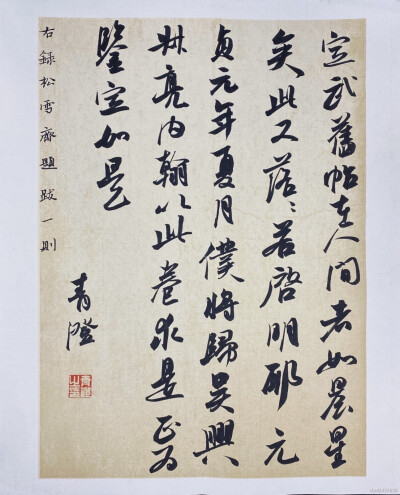 定武舊帖在人間者如晨星
矣此又落〻若啓明耶元
貞元年夏月僕將歸吴興
叔亮内翰以此卷求是正为
鑒定如是
右録松雪齋題跋一則
青澄